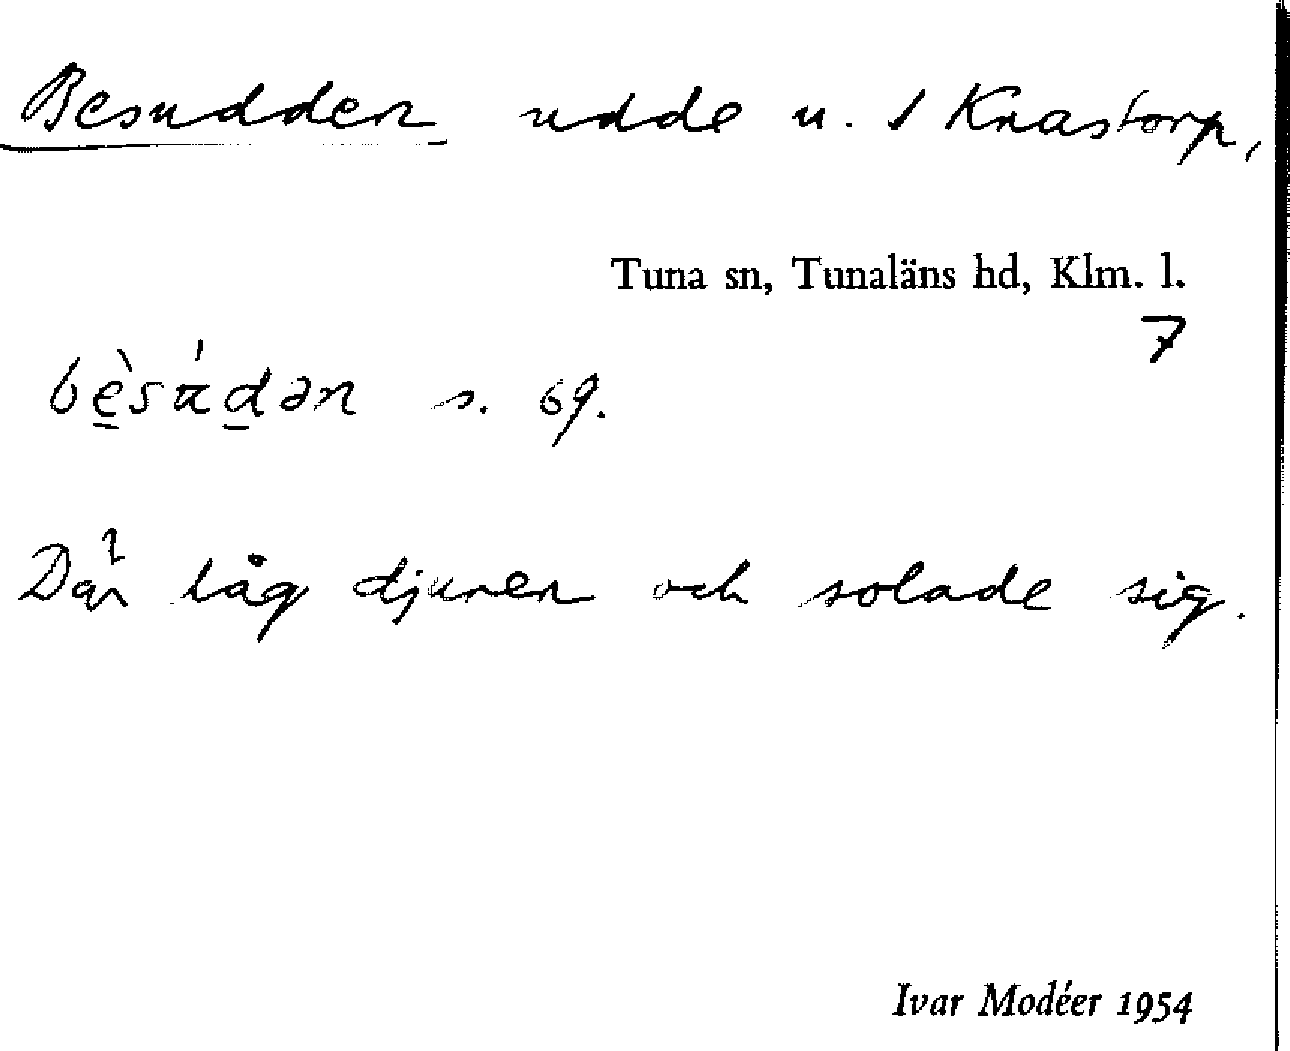 Besudden udde u. 1 Knastorp,
Tuna sn, Tunaläns hd, Klm. l.
7
s. 69.
Där låg djuren och solade sig.
Ivar Modéer 1954